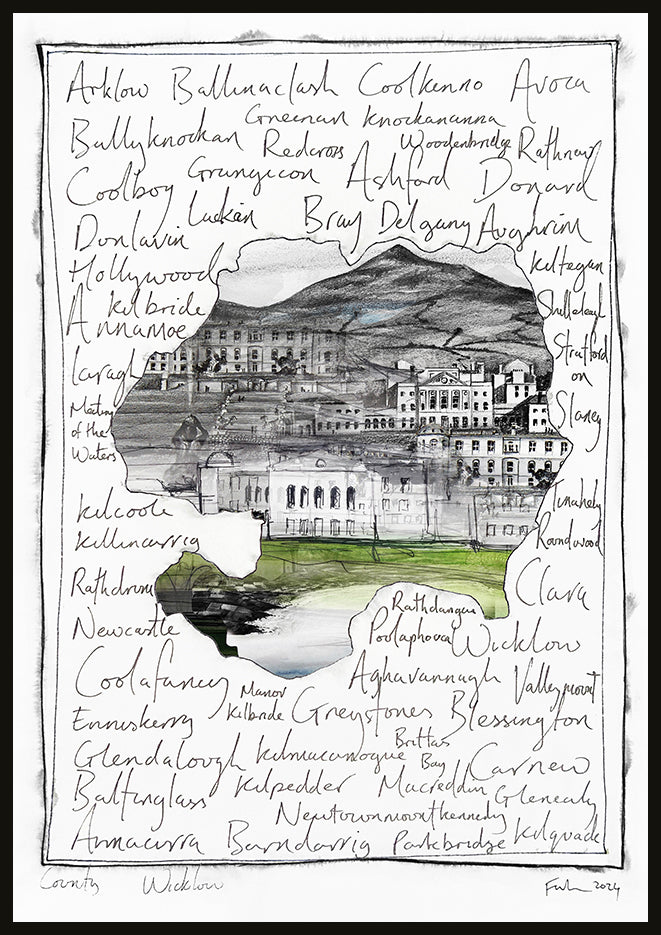 Arklow Ballinaclash Coolkenno Avoca
Greenan Knockananna
Ballyknockan Redcross Woodenbridge Rathnew
Coolboy Grangecon Ashford Donard
Donlavin Lackan Bray Delgany Aughrim
Hollywood Kiltegan
Kilbride Shillelagh
Annamoe Stratford
on
Slaney
Laragh
Meeting
of the
Waters
Kilcoole Tinahely
Killincarrig Roundwood
Rathdrum Clara
Rathdangan
Newcastle Poolaphoca Wicklow
Coolafancy Aghavannagh Valleymount
Manor
Kilbride
Enniskerry Greystones Blessington
Brittas
Bay
Glendalough Kilmacanogue Carnew
Baltinglass Kilpedder Macreddin Glenealy
Newtownmountkennedy
Annacurra Barndarrig Parkbridge Kilquade
County Wicklow 2024